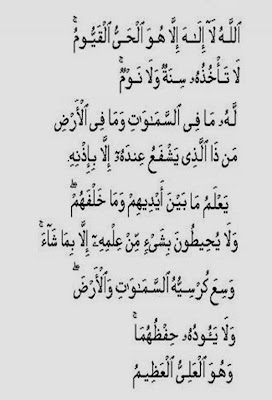 ٱللَّهُ لَآ إِلَـٰهَ إِلَّا هُوَ ٱلْحَىُّ ٱلْقَيُّومُ ۚ
لَا تَأْخُذُهُۥ سِنَةٌ وَلَا نَوْمٌ ۚ
لَّهُۥ مَا فِى ٱلسَّمَـٰوَٰتِ وَمَا فِى ٱلْأَرْضِ
مَن ذَا ٱلَّذِى يَشْفَعُ عِندَهُۥٓ إِلَّا بِإِذْنِهِۦ
يَعْلَمُ مَا بَيْنَ أَيْدِيهِمْ وَمَا خَلْفَهُمْ ۖ
وَلَا يُحِيطُونَ بِشَىْءٍ مِّنْ عِلْمِهِۦٓ إِلَّا بِمَا شَآءَ ۚ
وَسِعَ كُرْسِيُّهُ ٱلسَّمَـٰوَٰتِ وَٱلْأَرْضَ ۖ
وَلَا يَـُٔودُهُۥ حِفْظُهُمَا ۚ
وَهُوَ ٱلْعَلِىُّ ٱلْعَظِيمُ